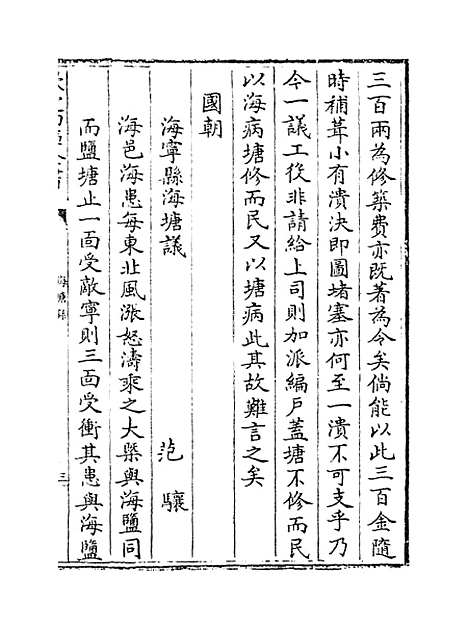 三百兩為修築費亦既著為令矣倘能以此三百金隨
時補葺小有潰決即圖堵塞亦何至一潰不可支乎乃
今一議工役非請給上司則加派編戶蓋塘不修而民
以海病塘修而民又以塘病此其故難言之矣
國朝
海寧縣海塘議　范驤
海邑海患每東北風漲怒濤乘之大槩與海鹽同
而鹽塘止一面受敵寧則三面受衝其患與海鹽
海塘錄
三